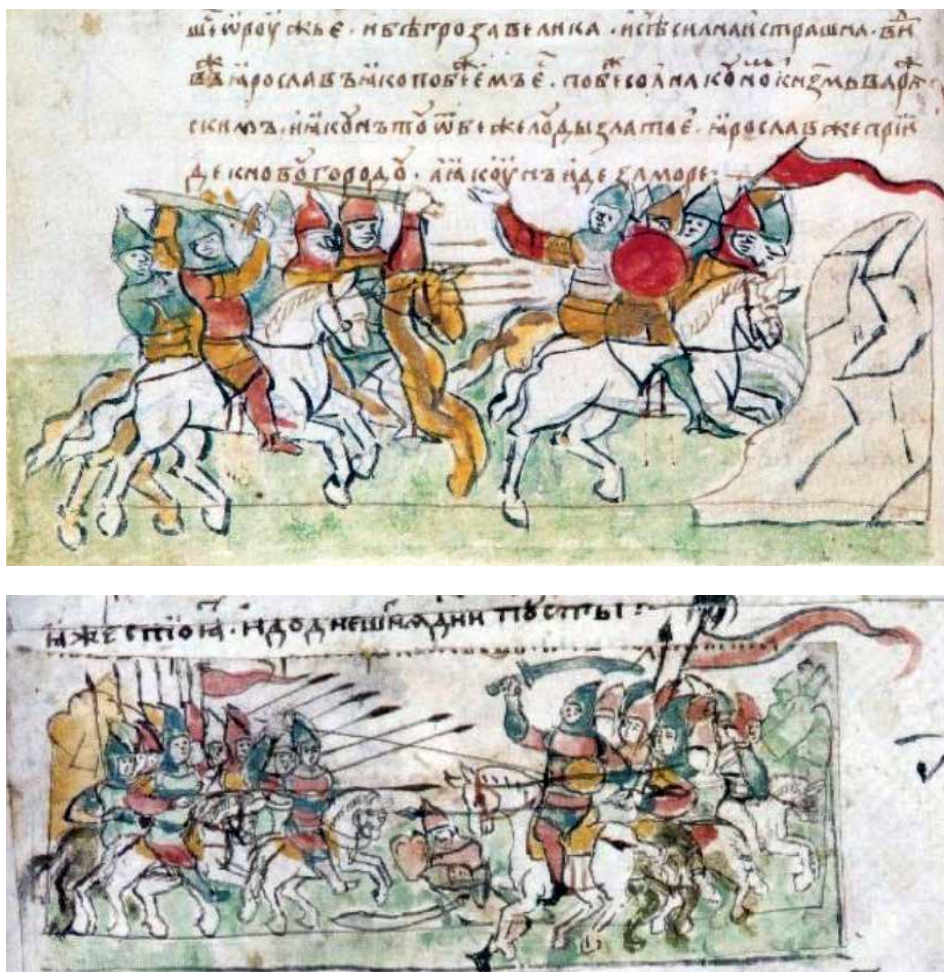 шеѡроужьє · и бѣ гроза велика · и сѣчасилнаистрашна · ви
въꙗрославъꙗкопобеѥмъє · побѣжесоꙗкуномъкнѧземьварѧ
скимъ · иꙗкунътоѿбежелоудызлатоє · ꙗрославжеприи
декновоугородоу · аꙗкоунъидезаморе :
ꙗжестоꙗ · идоднешнѧдни пусты :